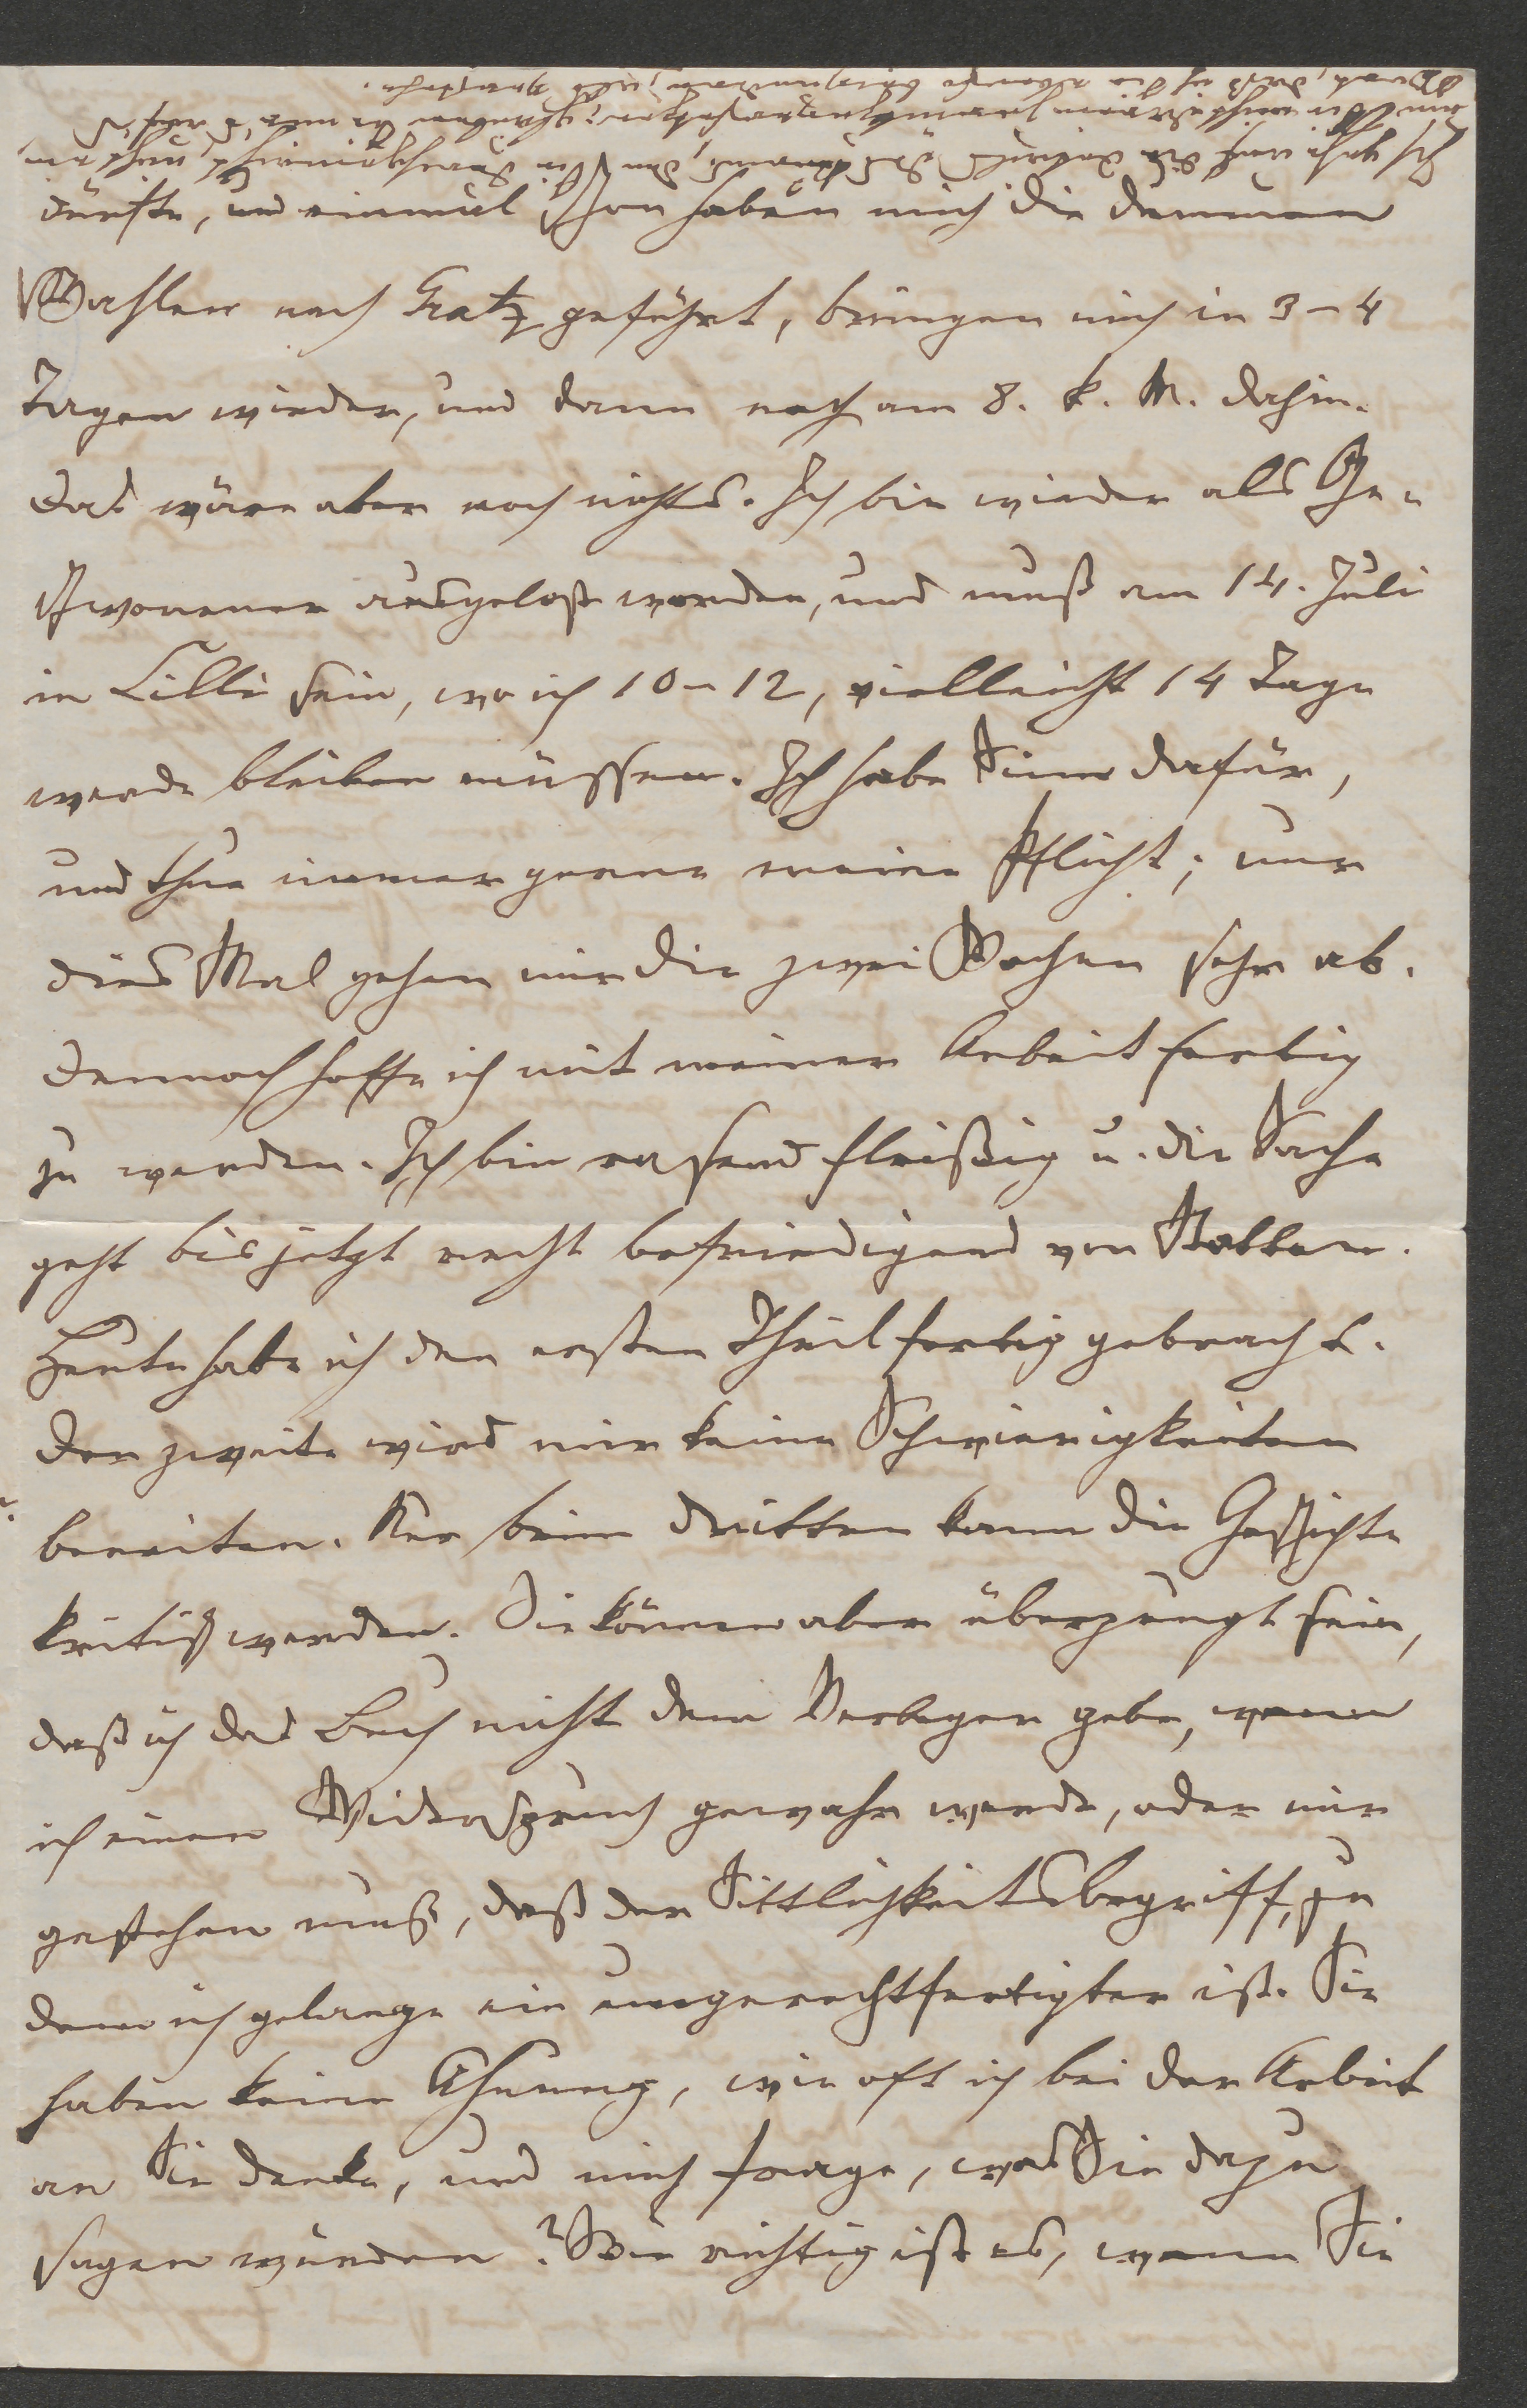 dürfte, und einmal schon haben mich die dummen
Wahlen nach Gratz geführt, bringen mich in 3–4
Tagen wieder, und dann noch am 8. k. M. dahin.
Das wäre aber noch nichts. Ich bin wieder als Ge-
schworener ausgelost worden, und muß am 14. Juli
in Cilli sein, wo ich 10–12, vielleicht 14 Tage
werde bleiben müssen. Ich habe Sinn dafür,
und thue immer gerne meine Pflicht; nur
dies Mal gehen mir die zwei Wochen sehr ab.
Dennoch hoffe ich mit meiner Arbeit fertig
zu werden. Ich bin rasend fleißig u. die Sache
geht bis jetzt recht befriedigend von Statten.
Heute habe ich den ersten Theil fertig gebracht.
Der zweite wird mir keine Schwierigkeiten
bereiten. Nur beim dritten kann die Geschichte
kritisch werden. Sie können aber überzeugt sein,
daß ich das Buch nicht dem Verleger gebe, wenn
ich einen Widerspruch gewahr werde, oder mir
gestehen muß, daß der Sittlichkeitsbegriff, zu
dem ich gelange ein ungerechtfertigter ist. Sie
haben keine Ahnung, wie oft ich bei der Arbeit
an Sie denke, und mich frage, was Sie dazu
sagen würden? Wie richtig ist es, wenn Sie